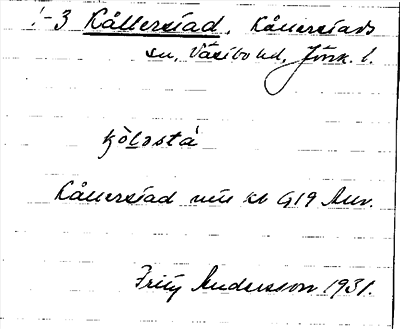 1-3 Kållerstad, Kållerstads
sn, Västbo hd, Jönk. l.
kɔ̀lɔstá
Kållerstad utn kb G19 Anv.
Fritz Andersson 1931.